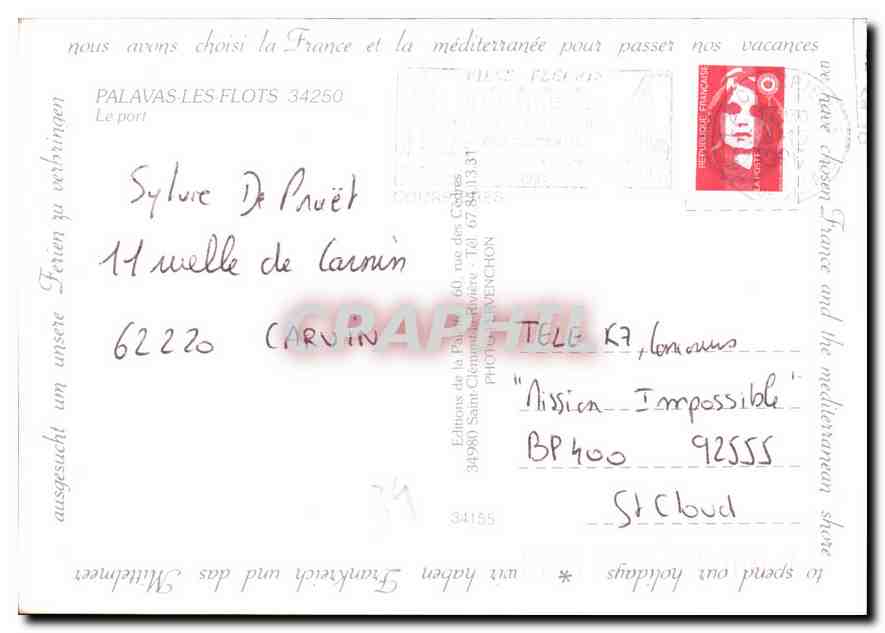 nous avons choisi la France et la méditerranée pour passer nos vacances
we have chosen France and the mediterranean shore
to spend our holidays * wir haben Frankreich und das Mittelmeer
ausgesucht um unsere Ferien zu verbringen
PALAVAS-LES-FLOTS 34250
Le port
REPUBLIQUE FRANÇAISE
LA POSTE
Sylvie De Pruët
11 ruelle de Carnin
62220 CARVIN
Editions de la 60, rue des Cèdres
34980 Saint-Clément-la-Rivière - Tél. 67.84.13.31
34155
34
CPAPHIL
TELE K7, Concours
"Mission Impossible"
BP 400 92555
St Cloud